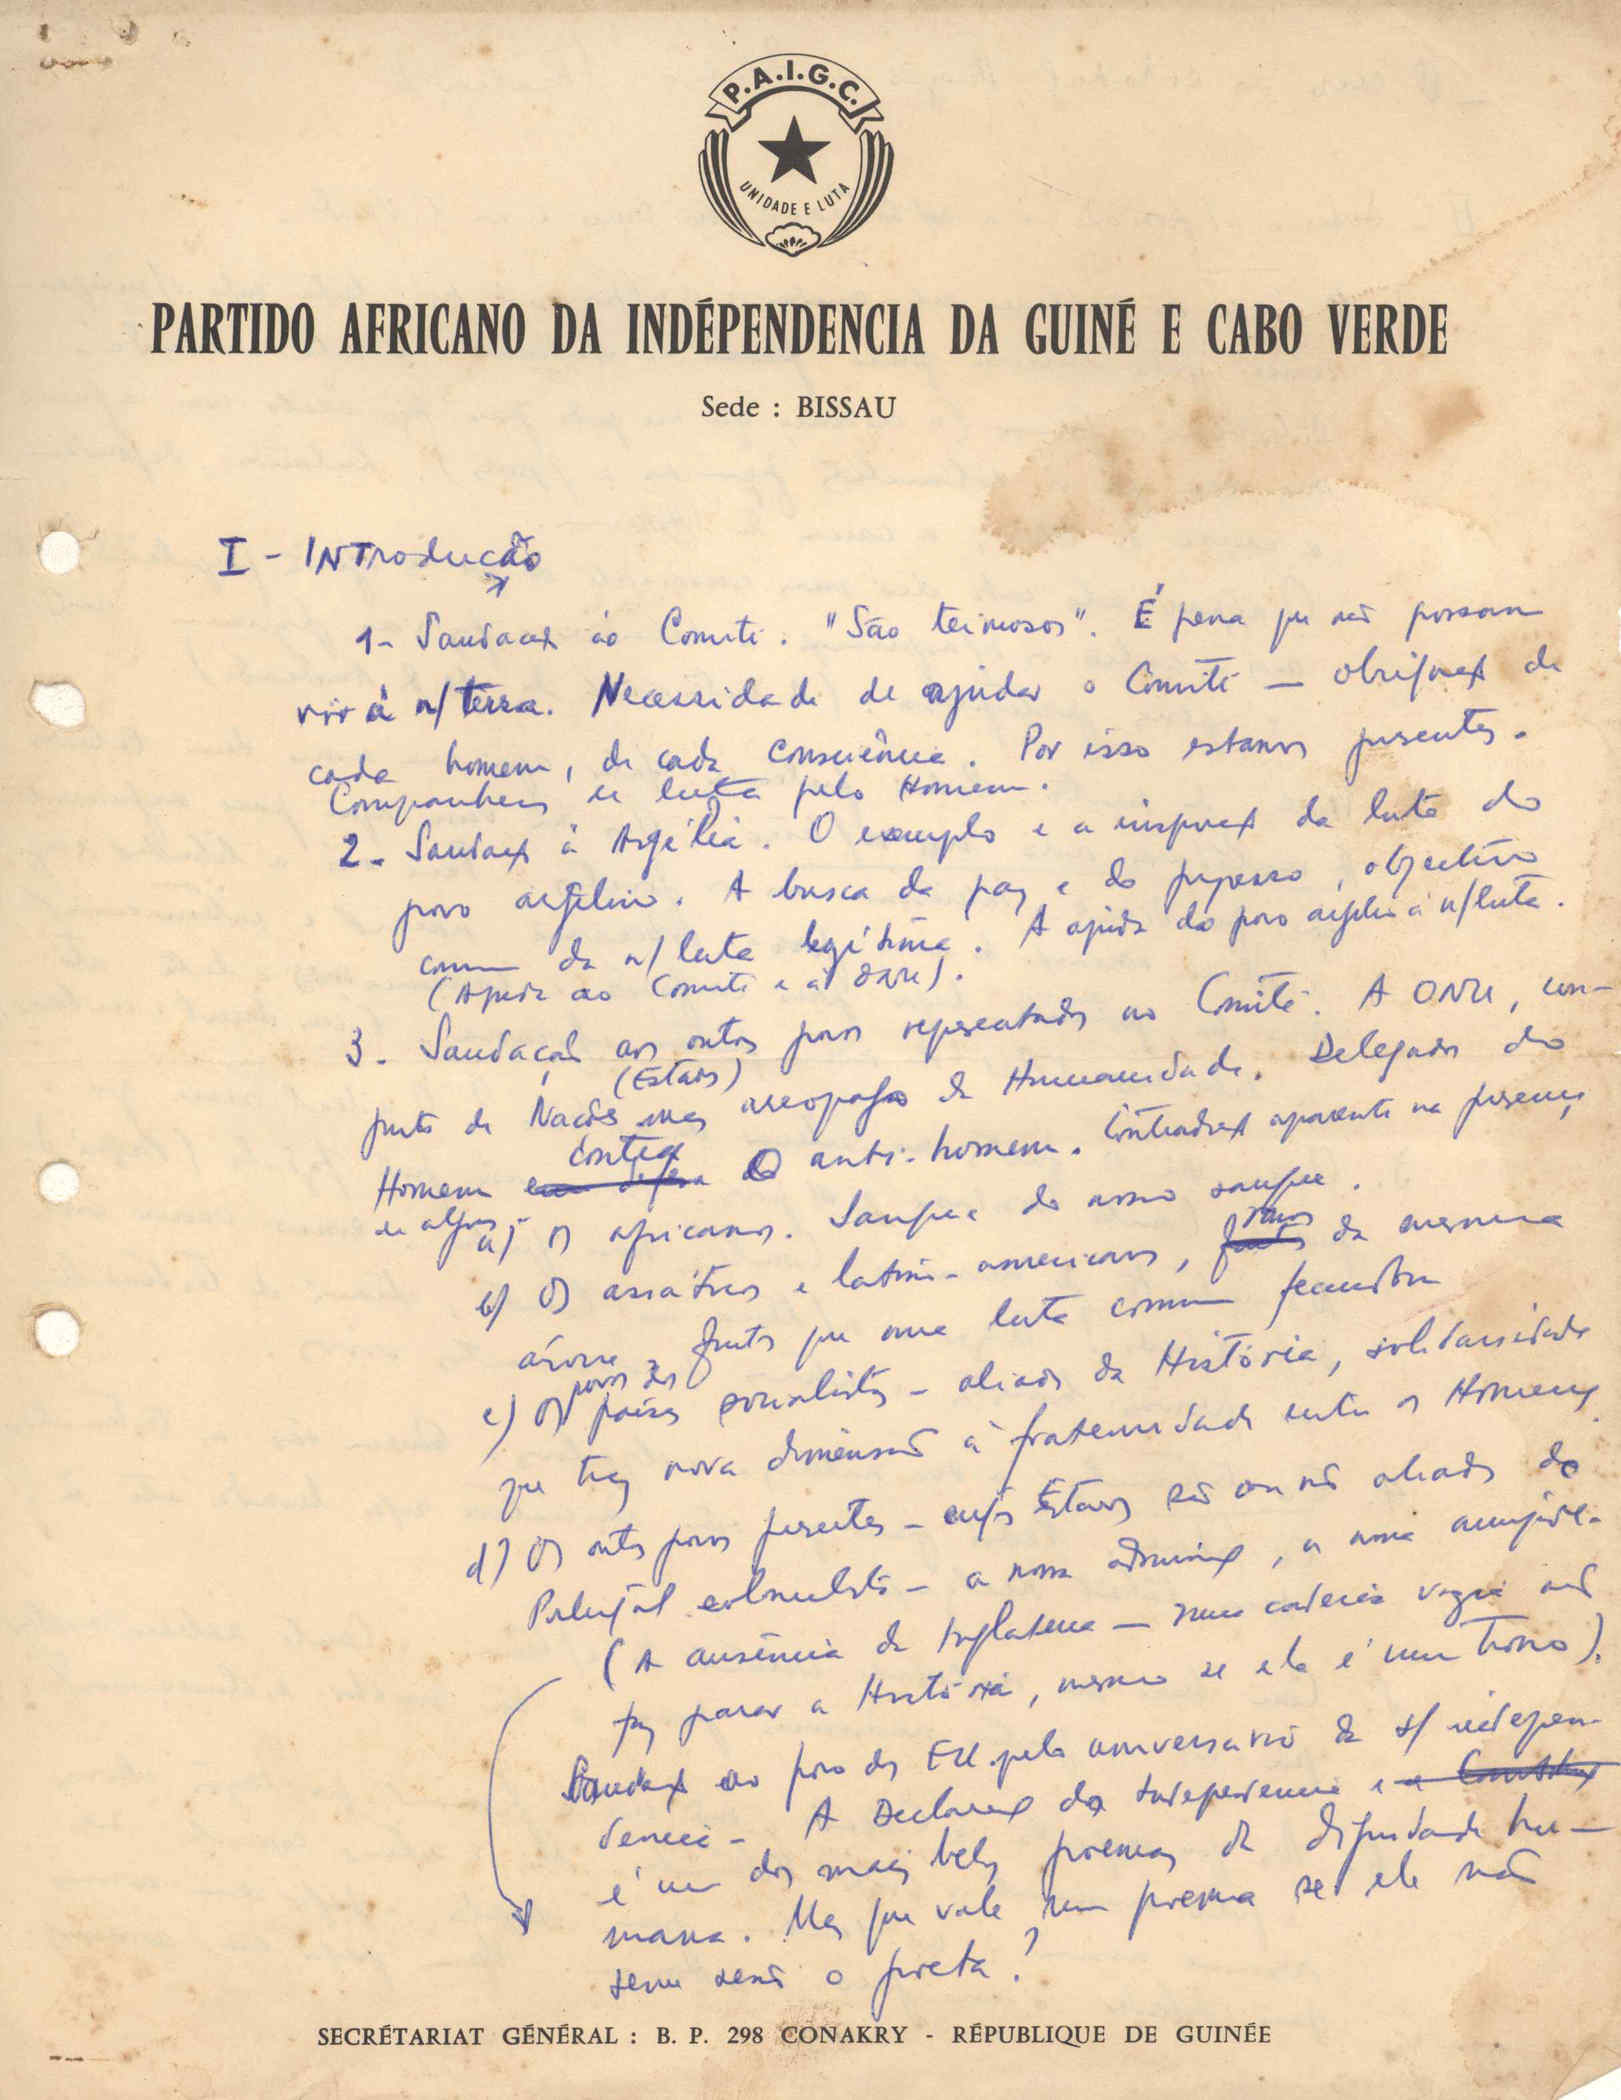 P.A.I.G.C.
UNIDADE E LUTA
PARTIDO AFRICANO DA INDÉPENDENCIA DA GUINÉ E CABO VERDE
Sede : BISSAU
I - INTRODUCÃO
1- ao Comité. "São teimosos". É pena que não possam
vir à n/ terra. Necessidade de ajudar o Comité — de
cada homem, de cada consciência. Por isso estamos presentes.
Companheiros de luta pelo Homem.
2- à Argélia. O exemplo e a da luta do
povo argelino. A busca da paz e do progresso, objectivo
comum da n/ luta legítima. A ajuda do povo argelino à n/ luta.
(Ajuda ao Comité e à ONU).
3- aos outros povos representados no Comité. A ONU, con-
(Estados)
junto de Nações mas areopago da Humanidade. Delegados do
contra
Homem em defesa o anti-homem. aparente na presença
de alguns -
a) Os africanos. Sangue do nosso sangue.
ramos
b) Os asiáticos e latino-americanos, da mesma
árvore, frutos que uma luta comum
povos dos
c) Os países socialistas - aliados da História, solidariedade
que traz nova dimensão à fraternidade entre os Homens
d) Os outros povos presentes - cujos Estados são ou não aliados do
Portugal colonialista - a nossa , a nossa amizade.
(A ausência da Inglaterra — uma cadeira vazia não
faz parar a História, mesmo se ela é um trono).
ao povo dos EU. pelo aniversário da s/ indepen-
dencia - A da Independencia e a
é um dos mais belos poemas da dignidade hu-
mana. Mas que vale um poema se ele não
serve senão o poeta?
SECRÉTARIAT GÉNÉRAL : B. P. 298 CONAKRY - RÉPUBLIQUE DE GUINÉE